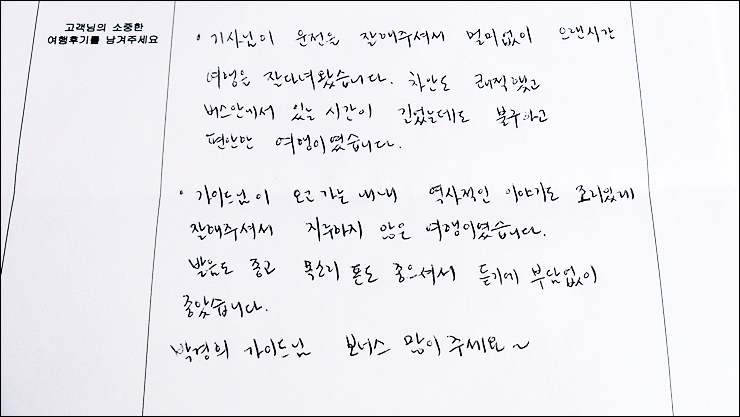 고객님의 소중한
여행후기를 남겨주세요
• 기사님이 운전을 잘해주셔서 멀미없이 오랜시간
여행을 잘다녀왔습니다. 차안도 쾌적했고
버스안에서 있는 시간이 길었는데도 불구하고
편안한 여행이였습니다.
• 가이드님이 오고 가는 내내 역사적인 이야기도 조리있게
잘해주셔서 지루하지 않은 여행이였습니다.
발음도 좋고 목소리 톤도 좋으셔서 듣기에 부담없이
좋았습니다.
박경희 가이드님 보너스 많이 주세요~